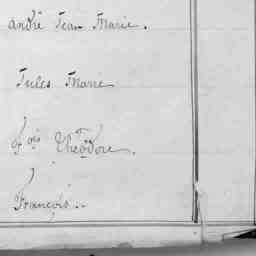 André Jean Marie.
Jules Marie
fois Théodore.
François..